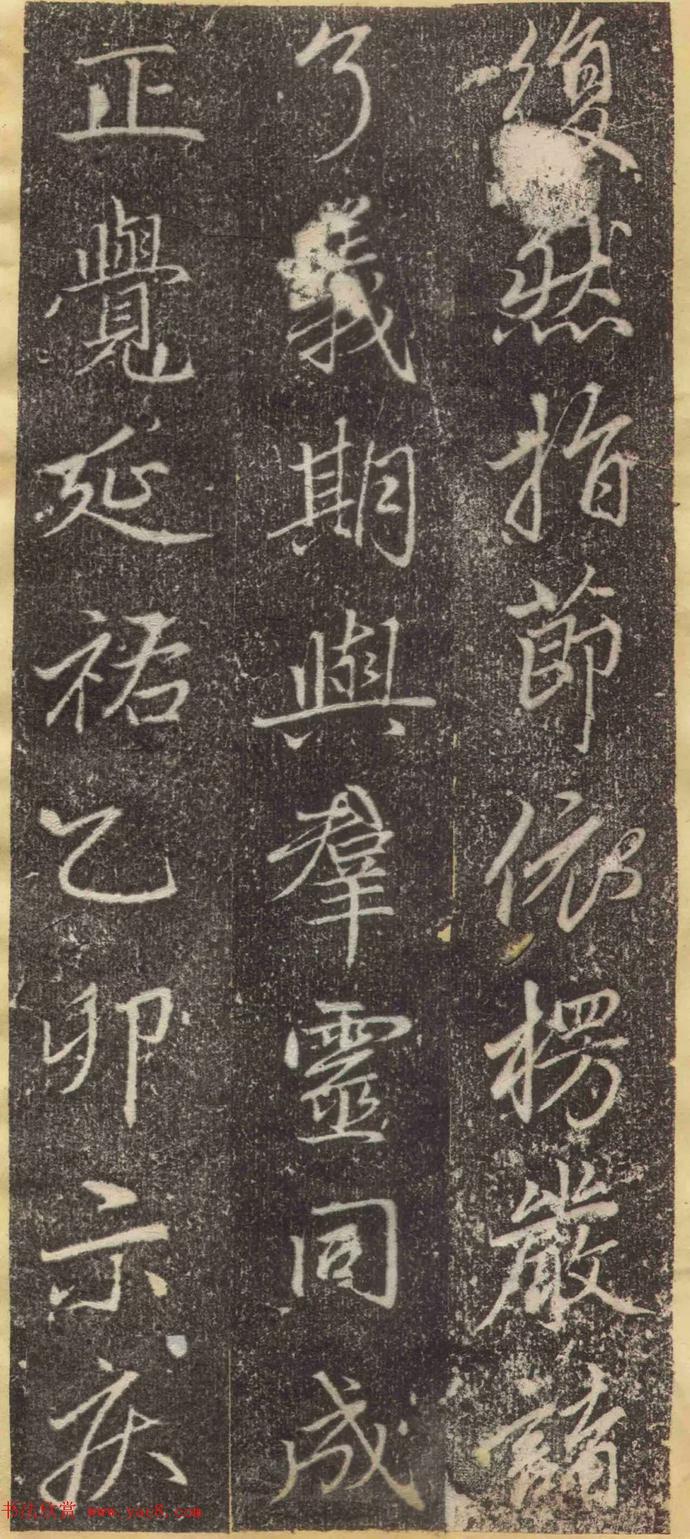 復然指節依楞嚴諸
了義期與羣靈同成
正覺延祐乙卯示疾
书法欣赏 www.yac8.com